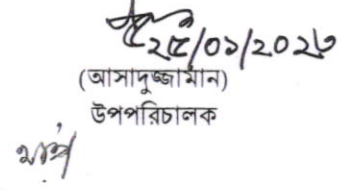 ২৫/০১/২০২৩
(আসাদুজ্জামান)
উপপরিচালক